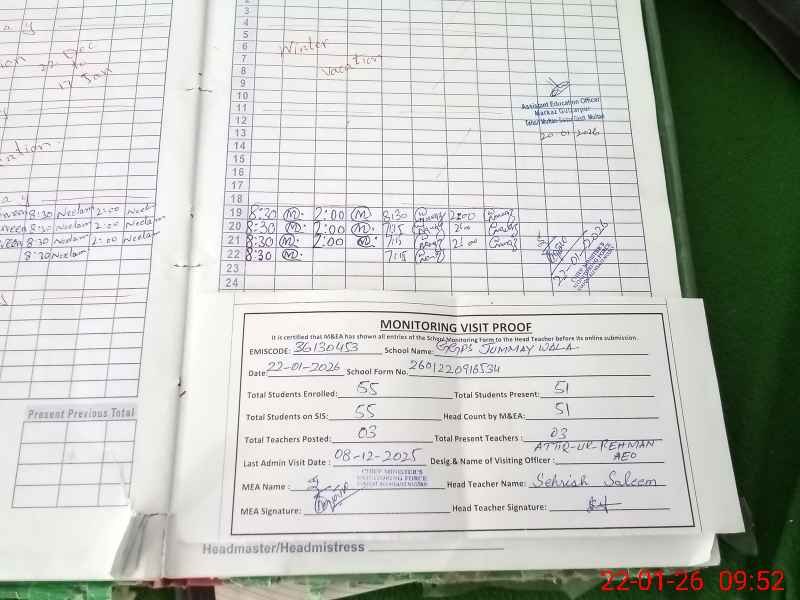 22 Dec
to
17 Jan
8:30 Neelam 2:00 Neelam
8:30 Neelam 2:00 Neelam
8:30 Neelam 2:00 Neelam
8:30 Neelam
Present Previous Total
3
4
5
6
7
8
9
10
11
12
13
14
15
16
17
18
Winter
Vacation
Assistant Education Officer
20-01-2026
19 8:30 M. 2:00 M 8:30 2:00
20 8:30 M. 2:00 M 7:15
21 8:30 M. 2:00 M 7:15 2:00
22 8:30 M. 7:15
23
24
22-01-2026
CHIEF MINISTER'S
MONITORING FORCE
MONITORING VISIT PROOF
It is certified that M&EA has shown all entries of the School Monitoring Form to the Head Teacher before its online submission.
EMISCODE: 36130453 School Name: GGPS JUMMAY WALA
Date: 22-01-2026 School Form No. 2601220916534
Total Students Enrolled: 55 Total Students Present: 51
Total Students on SIS: 55 Head Count by M&EA: 51
Total Teachers Posted: 03 Total Present Teachers : 03
Last Admin Visit Date : 08-12-2025 Desig.& Name of Visiting Officer : ATTIQ-UR-REHMAN
AEO
MEA Name : CHIEF MINISTER'S
MONITORING FORCE
Head Teacher Name: Sehrish Saleem
MEA Signature: Head Teacher Signature:
Headmaster/Headmistress
22-01-26 09:52